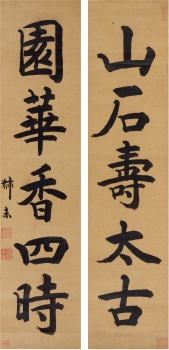 山石壽太古
園華香四時